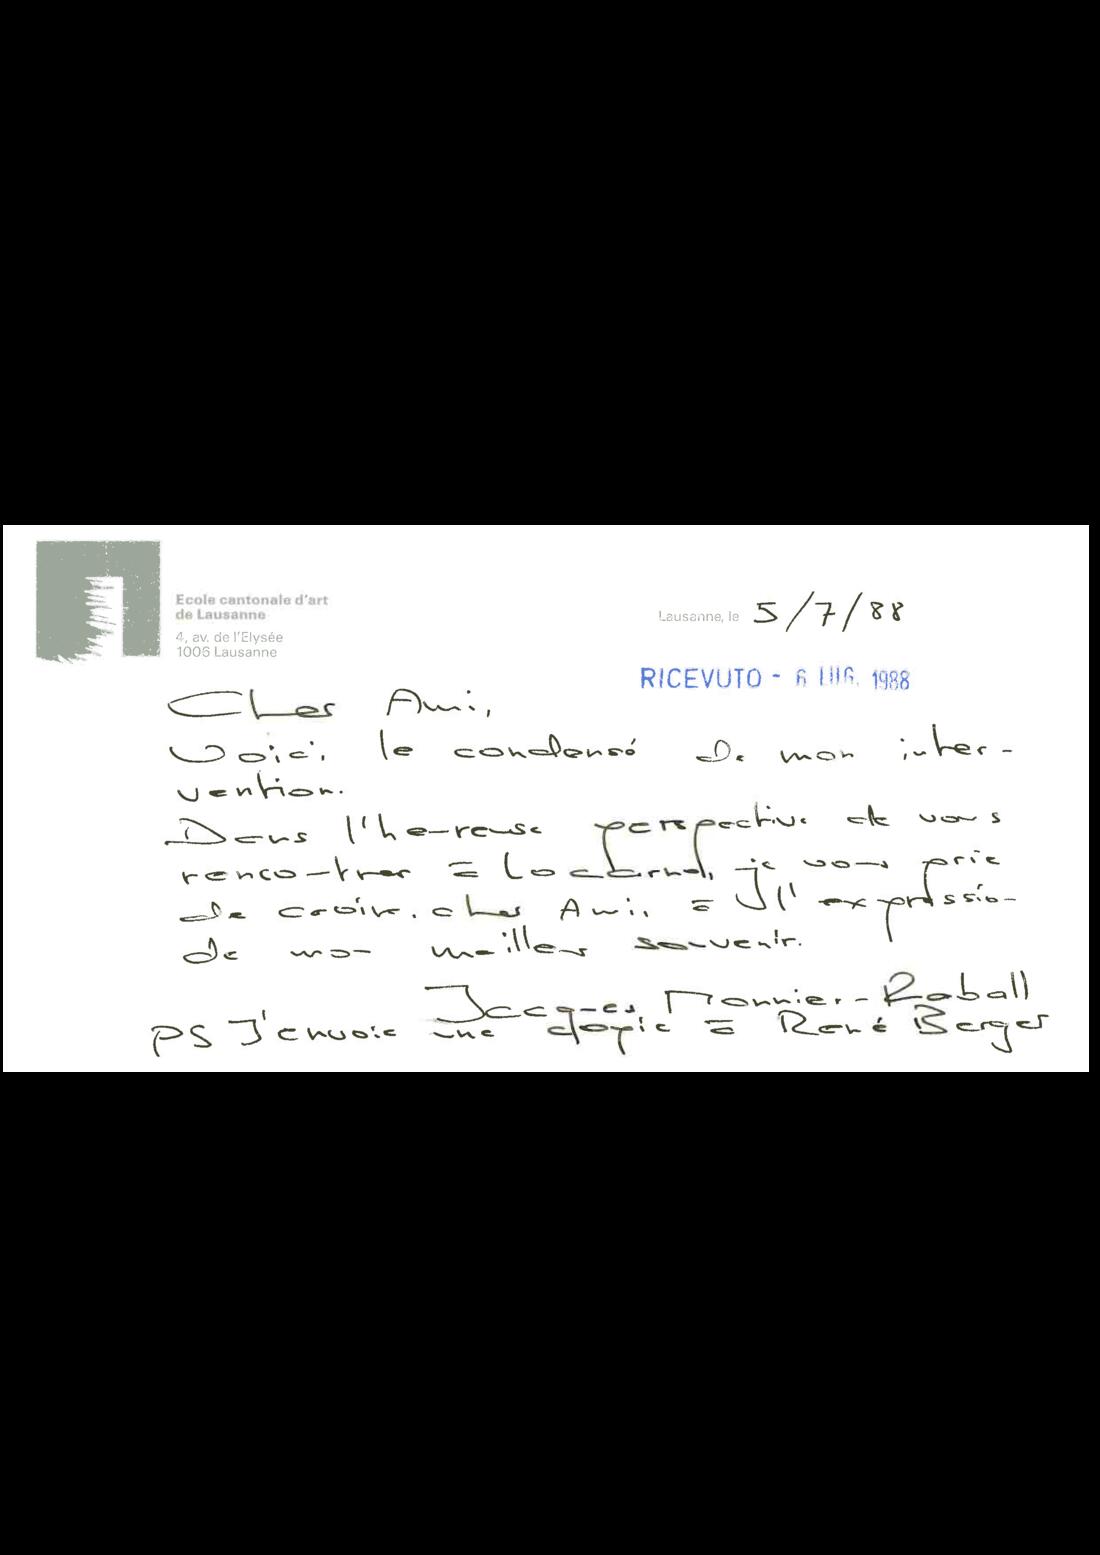 Ecole cantonale d'art
de Lausanne
4, av. de l'Elysée
1006 Lausanne
Lausanne, le 5/7/88
RICEVUTO - 6 LUG. 1988
Cher Ami,
Voici le condensé de mon inter-
vention.
Dans l'heureuse perspective de vous
rencontrer à Locarno, je vous prie
de croire, cher Ami, à l'expression
de mon meilleur souvenir.
Jacques Monnier-Raball
PS J'envoie une copie à René Berger